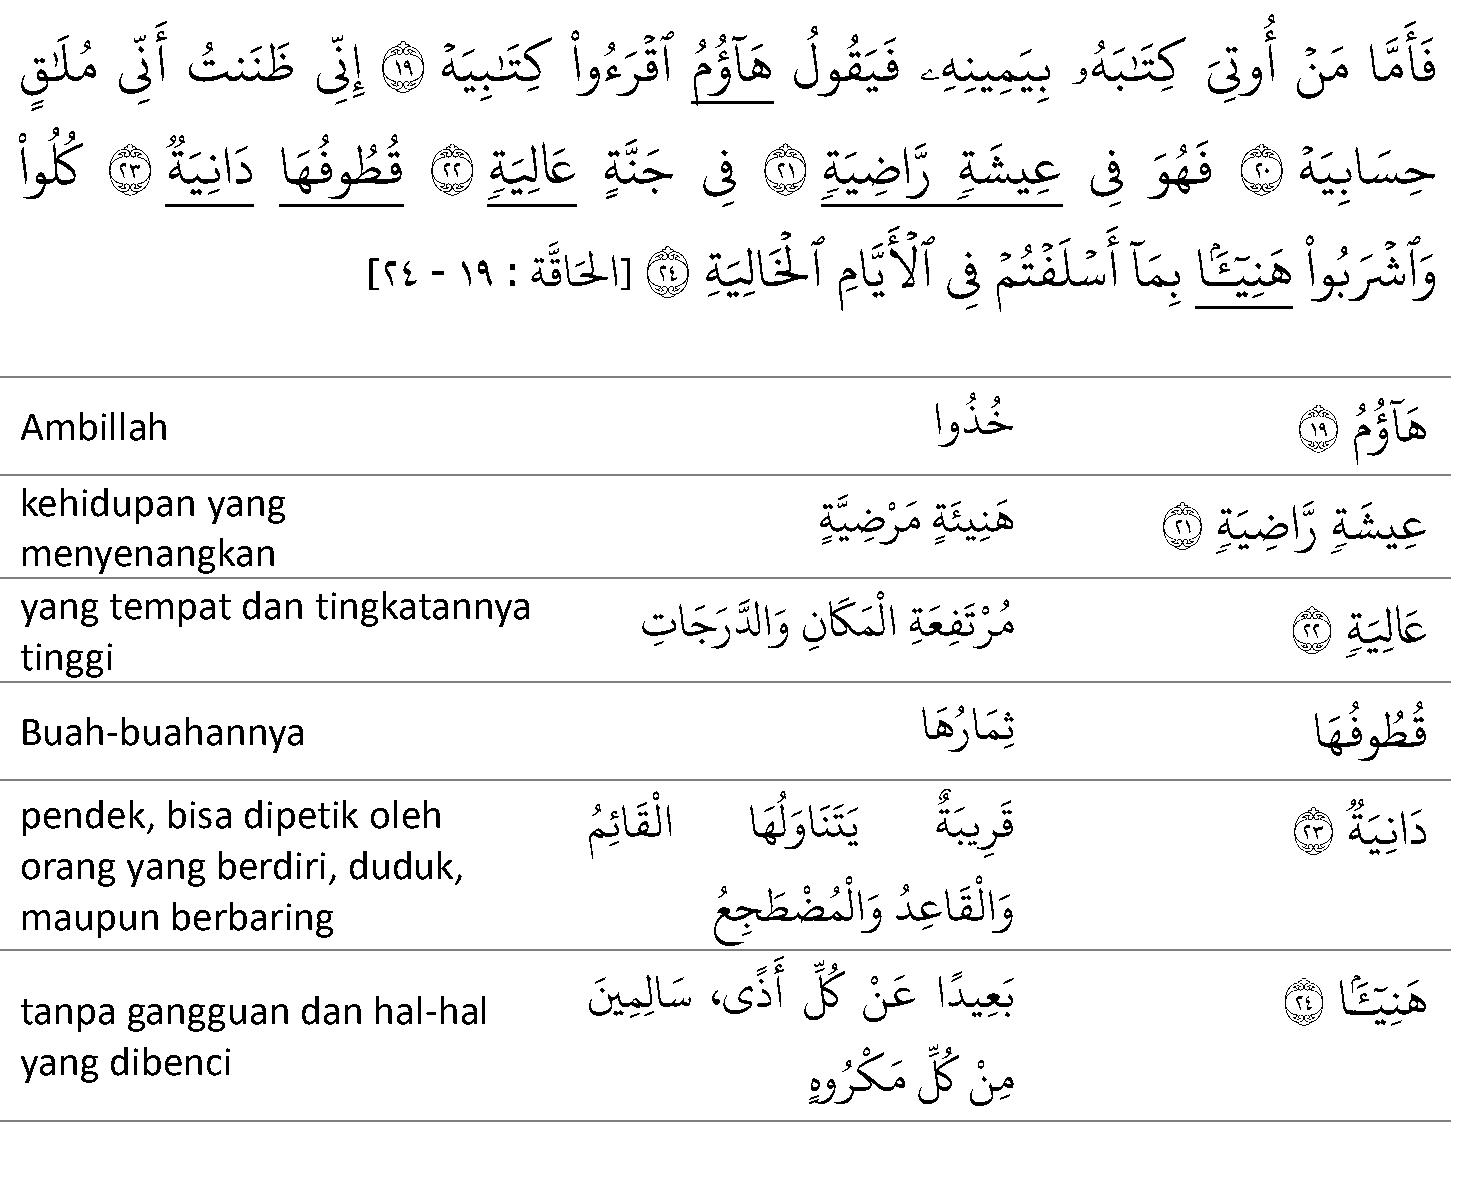 فَأَمَّا مَنۡ أُوتِيَ كِتَٰبَهُۥ بِيَمِينِهِۦ فَيَقُولُ هَآؤُمُ ٱقۡرَءُواْ كِتَٰبِيَهۡ ١٩ إِنِّي ظَنَنتُ أَنِّي مُلَٰقٍ
حِسَابِيَهۡ ٢٠ فَهُوَ فِي عِيشَةٖ رَّاضِيَةٖ ٢١ فِي جَنَّةٍ عَالِيَةٖ ٢٢ قُطُوفُهَا دَانِيَةٞ ٢٣ كُلُواْ
وَٱشۡرَبُواْ هَنِيٓـَٔۢا بِمَآ أَسۡلَفۡتُمۡ فِي ٱلۡأَيَّامِ ٱلۡخَالِيَةِ ٢٤ [الحَاقَّة : ١٩ - ٢٤]
هَآؤُمُ ١٩ خُذُوا Ambillah
عِيشَةٖ رَّاضِيَةٖ ٢١ هَنِيئَةٍ مَرْضِيَّةٍ kehidupan yang
menyenangkan
عَالِيَةٖ ٢٢ مُرْتَفِعَةِ الْمَكَانِ وَالدَّرَجَاتِ yang tempat dan tingkatannya
tinggi
قُطُوفُهَا ثِمَارُهَا Buah-buahannya
دَانِيَةٞ ٢٣ قَرِيبَةٌ يَتَنَاوَلُهَا الْقَائِمُ pendek, bisa dipetik oleh
orang yang berdiri, duduk,
وَالْقَاعِدُ وَالْمُضْطَجِعُ maupun berbaring
هَنِيٓـَٔۢا ٢٤ بَعِيدًا عَنْ كُلِّ أَذًى، سَالِمِينَ tanpa gangguan dan hal-hal
مِنْ كُلِّ مَكْرُوهٍ yang dibenci